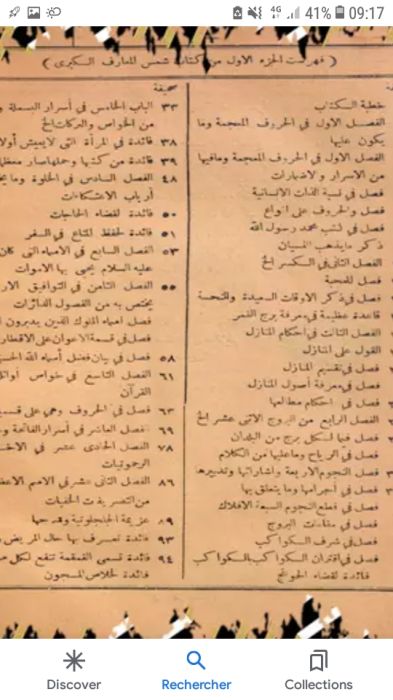 41% 09:17
4G
( فهرست الجزء الاول من كتاب شمس المعارف الكبرى )
خطبة الكتاب
الفصل الاول في الحروف المعجمة وما
يكون عليها
الفصل الاول في الحروف المعجمة ومافيها
من الاسرار والاضمارات
فصل في نسبة الذات الانسانية
فصل والحروف على انواع
فصل في لقب محمد رسول الله
ذكر مايذهب النسيان
الفصل الثانى في الكسر الخ
فصل للمحبة
فصل فى ذكر الاوقات السعيدة والنحسة
قاعدة عظيمة فى معرفة برج القمر
الفصل الثالث في احكام المنازل
القول على المنازل
فصل في تقسيم المنازل
فصل في معرفة أصول المنازل
فصل في احكام مطالعها
الفصل الرابع من البروج الاثنى عشر الخ
فصل فيما لكل برج من البلدان
فصل في الرياح وماعليها من الكلام
فصل النجوم الاربعة واشاراتها وتفسيرها
فصل في أجرامها وما يتعلق بها
فصل في قطع النجوم السبعة الافلاك
فصل في البروج
فصل في شرف الكواكب
فصل في اقتران الكواكب بالكواكب
فائدة لقضاء الحوائج
صحيفة
٣٣ الباب الخامس في أسرار البسملة و
من الخواص والبركات الخ
٣٨ فائدة في المرأة التى لايعيش أولا
٣٩ فائدة من كتبها وحملها صار معظم
٤٨ الفصل السادس في الخلوة وما يخ
أرباب الاعتكافات
٥٠ فائدة لقضاء الحاجات
٥١ فائدة لحفظ المتاع في السفر
٥٣ الفصل السابع في الاسماء التى كان
عليه السلام يحيى بها الاموات
٥٥ الفصل الثامن في التوافيق الار
يختص به من الفصول الدائرات
فصل اسماء الملوك الذين يدبرون ا
فصل فى قسمة الاعوان على الاقطار
٥٨ فصل في بيان فضل أسماء الله الحس
٦١ الفصل التاسع في خواص أوائل
القرآن
٦٣ فصل في الحروف وهى على قسم
٦٩ الفصل العاشر في أسرار الفاتحة و
٧٨ الفصل الحادى عشر في الاخـ
الرحموتيات
٨٦ الفصل الثانى عشر في الاسم الاعظ
من التصريفات الخفيات
٨٩ عزيمة الجلجلوتية وشرحها
٩٣ فائدة تعرف بها حال المريض
٩٤ فائدة تسمى القمقمة تنفع لكل م
فائدة لخلاص المسجون
Discover
Rechercher
Collections